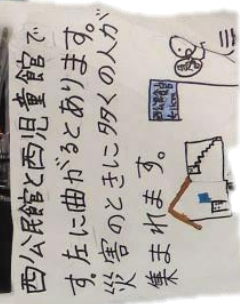 西公民館と西児童館で
す。左に曲がるとあります。
災害のときに多くの人が
集まれます。